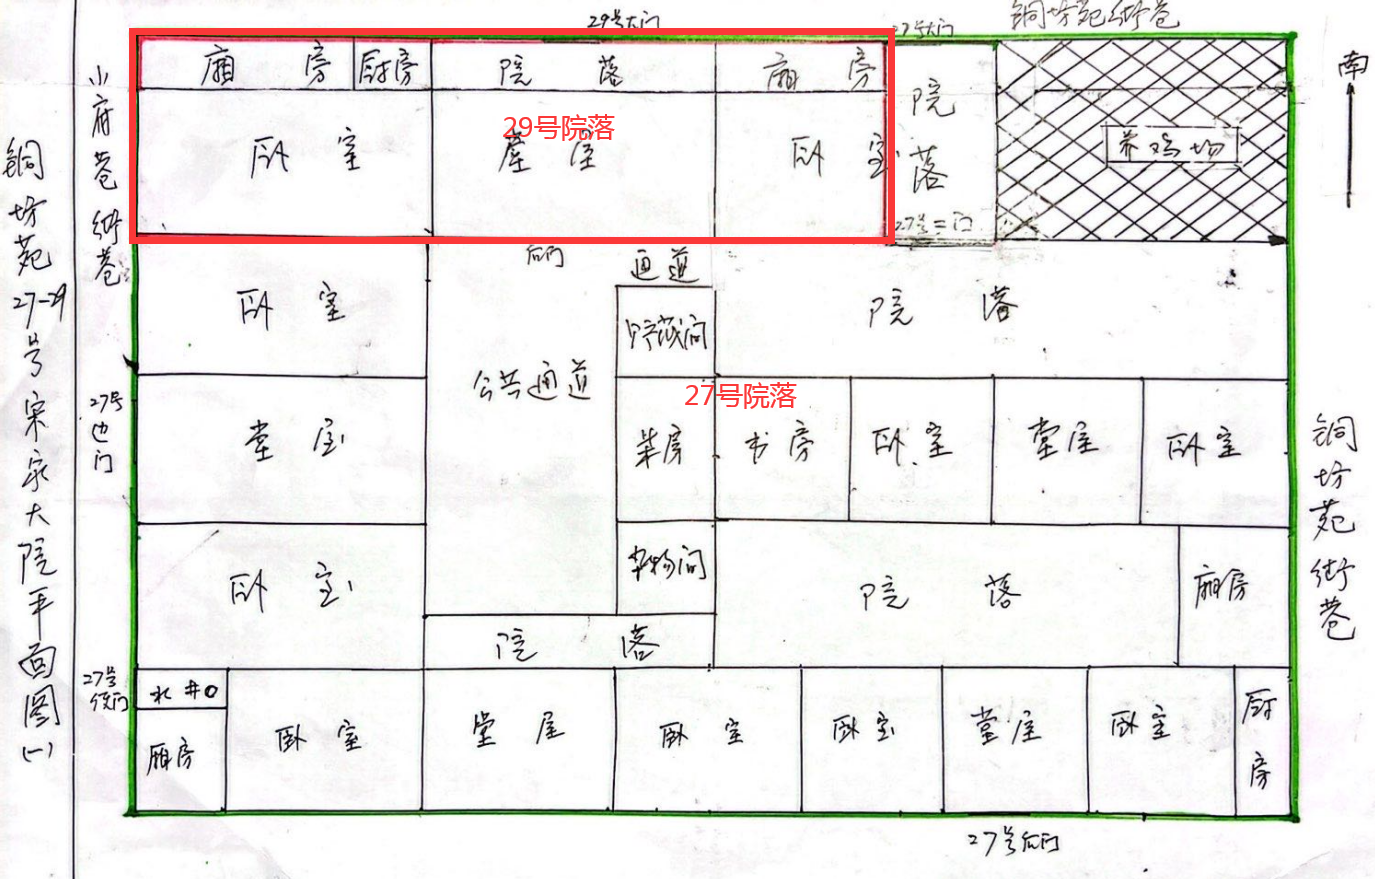 铜坊苑27-29号宋家大院平面图(一)
小府巷街巷
29号大门
27号大门
铜坊苑街巷
南
厢房
厨房
院落
厢房
院落
养鸡场
卧室
29号院落
堂屋
卧室
27号二门
后门
通道
卧室
贮藏间
院落
公共通道
27号院落
27号边门
堂屋
柴房
书房
卧室
堂屋
卧室
铜坊苑街巷
卧室
杂物间
院落
厢房
院落
27号
水井
厢房
卧室
堂屋
卧室
卧室
堂屋
卧室
厨房
27号后门